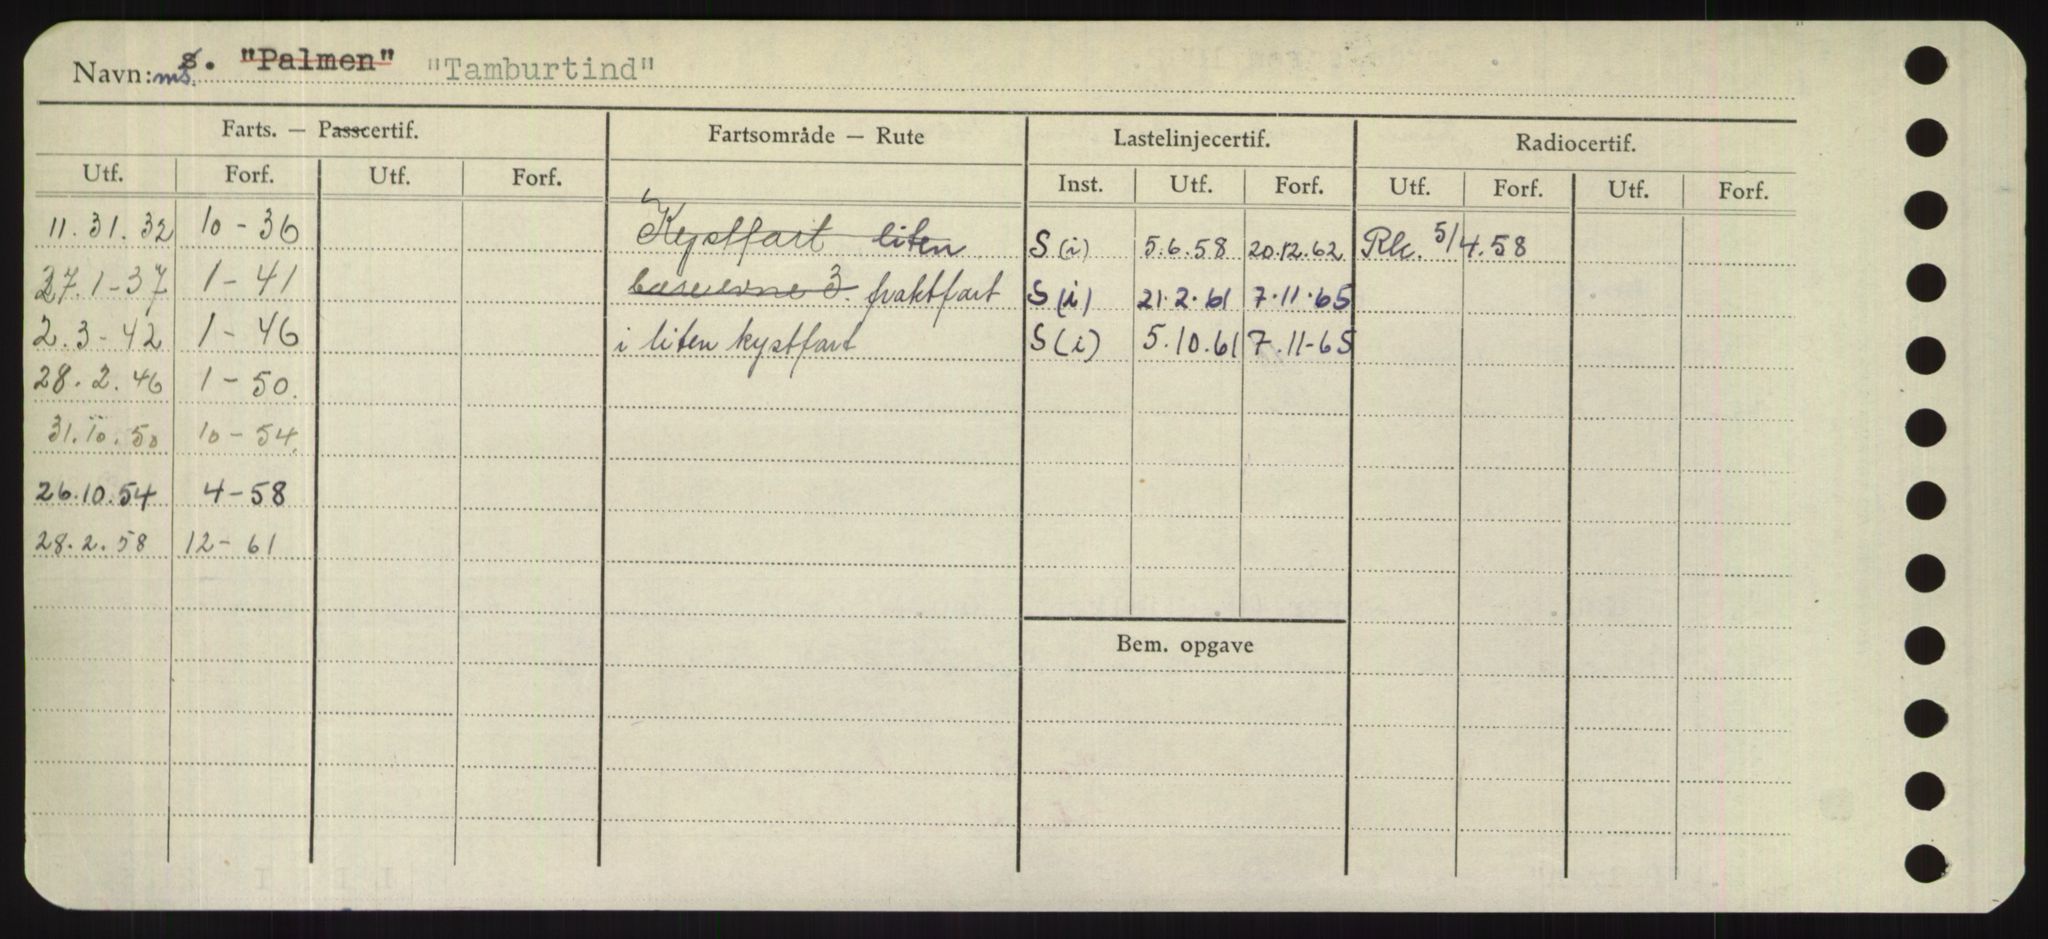 Navn: ms. s. "Palmen" "Tamburtind"
Farts. — Passcertif. Fartsområde — Rute Lastelinjecertif. Radiocertif.
Utf. Forf. Utf. Forf. Inst. Utf. Forf. Utf. Forf. Utf. Forf.
11.31.32 10-36 Kystfart liten S(i) 5.6.58 20.12.62 Rk. 5/4.58
27.1-37 1-41 3. fraktfart S(i) 21.2.61 7.11.65
2.3-42 1-46 i liten kystfart S(i) 5.10.61 7.11-65
28.2.46 1-50.
31.10.50 10-54
26.10.54 4-58
28.2.58 12-61
Bem. opgave